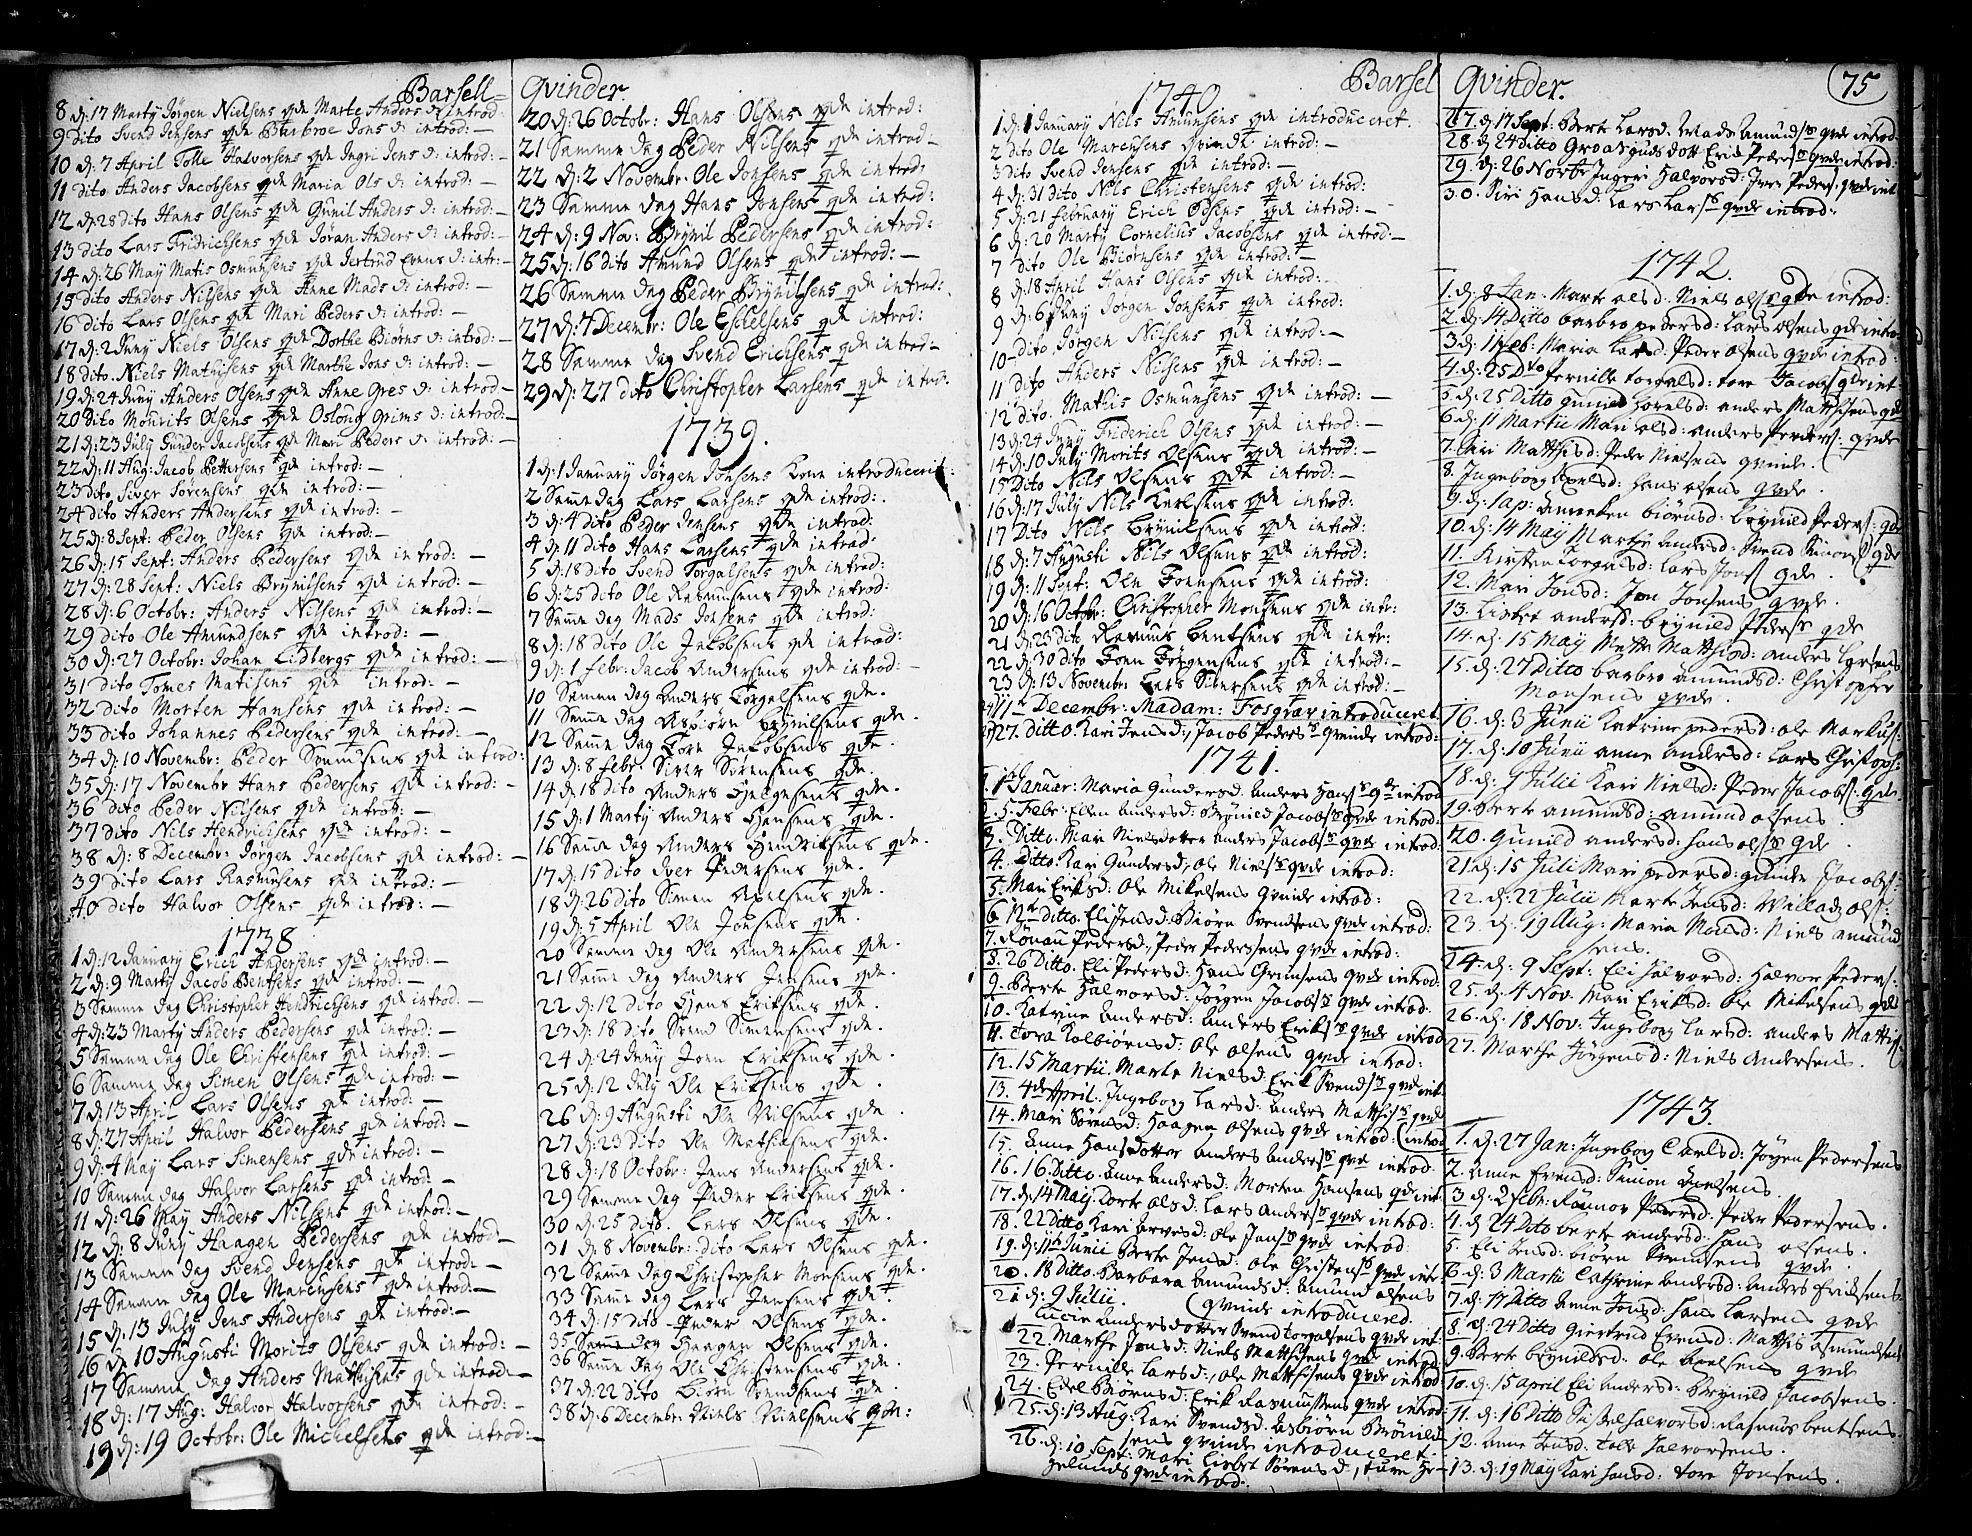 Barsell= Qvinder.
8 d: 17 Marty Jörgen Nielsens qde Marte Anders d: introd:
9 dito Svend Jensens qde Barbroe Jons d: introd: —
10 d: 7 April Tolle Halvorsens qde Ingri Jens d: introd: —
11 dito Anders Jacobsens qde Maria Ols d: introd: —
12 d: 28 dito Hans Olsens qde Gunil Anders d: introd: —
13 dito Lars Fridrichsens qde Jöran Anders d: introd: —
14 d: 26 May Matis Osmunsens qde Jertrud Evens d: intr: —
15 dito Anders Nilsens qde Anne Mads d: introd: —
16 dito Lars Olsens qde Mari Peders d: introd: —
17 d: 2 Juny Niels Olsens qde Dorthe Biörns d: introd: —
18 dito Niels Mathisens qde Marthe Jons d: introd: —
19 d: 24 Juny Anders Olsens qde Anne Gres d: introd —
20 Dito Mourits Olsens qde Oslong Grims d: introd: —
21 d: 23 July Gunder Jacobsens qde Mari Peders d: introd: —
22 d: 11 Aug: Jacob Pettersens qde introd: —
23 dito Siver Sörensens qde introd: —
24 dito Anders Andersens qde introd: —
25 d: 8 Sept: Peder Olsens qde introd: —
26 d: 15 Sept: Anders Pedersens qde introd: —
27 d: 28 Sept: Niels Brynilsens qde introd: —
28 d: 6 Octobr: Anders Nilsens qde introd: —
29 dito Ole Amundsens qde introd: —
30 d: 27 Octobr: Johan Lidbergs qde introd: —
31 dito Tomes Matisens qde introd: —
32 dito Morten Hansens qde introd: —
33 dito Johannes Pedersens qde introd: —
34 d: 10 Novembr: Peder Sönmisens qde introd:
35 d: 17 Novembr Hans Pedersens qde introd: —
36 dito Peder Nilsens qde introd: —
37 dito Nils Hendrichsens qde introd: —
38 d: 8 Decembr: Jörgen Jacobsens qde introd: —
39 dito Lars Rasmusens qde introd: —
40 dito Halvor Olsens qde introd: —
1738
1 d: 12 January Erich Andersens qde introd: —
2 d: 9 Marty Jacob Bentsens qde introd: —
3 Samme dag Christopher Hendrichsens qde introd: —
4 d: 23 Marty Anders Pedersens qde introd: —
5 Samme dag Ole Christensens qde introd: —
6 Samme dag Simen Olsens qde introd: —
7 d: 13 April Lars Olsens qde introd: —
8 d: 27 April Halvor Pedersens qde introd: —
9 d: 4 May Lars Simensens qde introd: —
10 Samme dag Halvor Larsens qde introd: —
11 d: 26 May Anders Nilsens qde introd: —
12 d: 8 Juny Haagen Pedersens qde introd: —
13 Samme dag Svend Jensens qde introd: —
14 Samme dag Ole Marensens qde introd: —
15 d: 13 July Jens Andersens qde introd: —
16 d: 10 Augusti Morits Olsens qde introd: —
17 Samme dag Anders Mathisens qde introd: —
18 d: 17 Aug: Halvor Halvorsens qde introd: —
19 d: 19 Octobr: Ole Michelsens qde introd: —
20 d: 26 Octobr: Hans Olsens qde introd:
21 Samme dag Peder Nilsens qde introd —
22 d: 2 Novembr: Ole Jonsens qde introd:
23 Samme dag Hans Jonsens qde introd:
24 d: 9 Nov: Brynil Pedersens qde introd:
25 d: 16 dito Amund Olsens qde introd: —
26 Samme dag Peder Brynilsens qde introd:
27 d: 7 Decembr: Ole Eskelsens qde introd:
28 Samme dag Svend Erichsens qde introd —
29 d: 27 dito Christopher Larsens qde introd:
1739.
1 d: 1 January Jörgen Jonsens Kone introducerit:
2 Samme dag Lars Larsens qde introd:
3 d: 4 dito Peder Jensens qde introd:
4 d: 11 dito Hans Larsens qde introd:
5 d: 18 dito Svend Torgalsens qde introd:
6 d: 25 dito Ole Rasmusens qde introd:
7 Samme dag Mads Jonsens qde introd:
8 d: 18 dito Ole Jacobsens qde introd:
9 d: 1 febr: Jacob Andersens qde introd:
10 Samme dag Anders Torgalsens qde.
11 Samme dag Asbiörn Brynilsens qde.
12 Samme dag Torn Jacobsens qde.
13 d: 8 febr: Siver Sörensens qde.
14 d: 18 dito Anders Helgesens qde.
15 d: 1 Marty Anders Hansens qde.
16 Samme dag Anders Hendriksens qde.
17 d: 15 dito Iver Pedersens qde.
18 d: 26 dito Simen Axelsens qde.
19 d: 5 April Ole Jonsens qde.
20 Samme dag Ole Andersens qde.
21 Samme dag Anders Jensens qde.
22 d: 12 dito Hans Eriksens qde.
23 d: 18 dito Svend Simensens qde.
24 d: 24 Juny Joen Eriksens qde.
25 d: 12 July Ole Eriksens qde.
26 d: 9 Augusti Ole Nilsens qde.
27 d: 23 dito Ole Mathisens qde.
28 d: 18 Octobr: Jens Andersens qde.
29 Samme dag Peder Eriksens qde.
30 d: 25 dito. Lars Olsens qde.
31 d: 8 Novembr: dito Lars Olsens qde.
32 Samme dag Christopher Monsens qde.
33 Samme dag Lars Jensens qde.
34 d: 15 dito Peder Olsens qde.
35 Samme dag Haagen Olsens qde.
36 Samme dag Ole Christensens qde.
37 d: 22 dito Biörn Svendsens qde.
38 d: 6 Decembr: Niels Nielsens qdn:
Barsel Qvinder. 75
1740
1 d: 1 January Nils Amunsens qde introduceret.
2 dito Ole Marensens Qvinde introd: —
3 dito Svend Jensens qde introd: —
4 d: 31 dito Nils Christensens qde introd: —
5 d: 21 february Erich Olsens qde introd: —
6 d: 20 Marty Cornelius Jacobsens qde introd: —
7 dito Ole Biörnsens qde introd: —
8 d: 18 April Hans Olsens qde introd:
9 d: 6 Juny Jörgen Jonsens qde introd:
10 dito Jörgen Nilsens qde introd: —
11 dito Anders Nilsens qde introd: —
12 dito. Mathis Osmunsens qde introd: —
13 d: 24 Juny Friderich Olsens qde introd: —
14 d: 10 July Morits Olsens qde introd: —
15 Dito Nils Olsens qde introd: —
16 d: 17 July Nils Karlsens qde introd:
17 Dito Nils Brynilsens qde introd:
18 d: 7 Augusti Nils Olsens qde introd:
19 d: 11 Sept: Ole Joensens qde introd:
20 d: 16 Octobr: Christopher Monsens qde intr:
21 d: 23 dito Rasmus Bentsens qde intr:
22 d: 30 dito Joen Jörgensens qde introd: —
23 d: 13 Novembr: Lars Siversens qde introd: —
24 11te Decembr: Madam: Fosgrav introduceret.
27. ditto. Kari Jensd:, Jacob Peders: Qvinde introd:
1741.
1. 1ste Januar: Maria Gundersd: Anders Hans: qde introd
2. 5. Febr: Ellen Andersd: Brönild Jacobs: qvde introd:
3. Ditto. Mari Nielsdotter Anders Jacobs: qvde introd:
4. Ditto. Kari Gundersd:, Ole Niels: qvde introd:
5. Mari Eriksd: Ole Mikelsens Qvinde introd:
6. 12te Ditto. Eli Jensd: Biörn Svendsens qvde introd:
7. Rönau Pedersd: Peder Pedersens qvde introd:
8. 26 Ditto. Eli Pedersd: Hans Grimsens qvde introd:
9. Berte Halvorsd: Jörgen Jacobs: qvde introd:
10. Katrine Andersd: Anders Eriks: qvde introd:
11. Tora Kolbiörnsd: Ole Olsens qvde introd:
12. 15 Martii. Marte Nielsd: Erik Svends: qvde int:
13. 4de April. Ingeborg Larsd: Anders Matthis: qvde
14. Mari Sörensd: Haagen Olsens qvde introd: (introd
15. Anne Hansdotter Anders Anders: qvd introd:
16. 16. Ditto. Anne Andersd: Morten Hansens qde int:
17. d: 14 May: Dorte Olsd: Lars Anders: qvde introd:
18. 22 Ditto Kari Larsd: Ole Jons: qvde introd:
19. d: 11te Junii Berte Jensd: Ole Christens: qvde intr:
20. 18 Ditto. Barbara Amundsd: Amund Olsens
21 d: 9 Julii. (Qvinde introducered.
Lucie Andersdotter Svend Torgalsens qvde int:
22. Marthe Jonsd: Niels Matthisens qvde introd:
23. Pernille Larsd:, Ole Matthisens qvde introd:
24. Edel Biörnsd: Erik Rasmussens qvde introd:
25. d: 13 Aug: Kari Svendsd: Asbiörn Brönild
sens qvinde introduceret.
26. d: 10 Sept: Mari Lisbet Sörensd, Ture He-
gelunds qvde introd:
27. d: 17 Sept: Berte Larsd: Mads Amunds: qvde introd:
28. d: 24 Ditto Groa Sguds dott Erik Peders: qvde introd:
29. d: 26 Novbr Ingeri Halvorsd: Iver Peders: qvde int
30. Siri Hansd: Lars Lars: qvde introd:
1742.
1. d: 8 Jan: Marte Olsd: Niels Ols: qde introd:
2. d: 14 Ditto barbro pedersd: Lars Olsens qde intro
3. d: 1 Feb: Maria Larsd: Peder Olsens qvde introd:
4. d: 25 Dito Pernille Torgalsd: Tore Jacobs: qde int
5. d: 25 Ditto gunild Torelsd: anders Matthisens qde
6. d: 11 Martii Mari Olsd: anders Peders: qvde
7. Siri Matthisd: Peder Nielsens qvinde.
8. Ingeborg Axelsd: Hans Olsens qvde.
9. d: 1 ap: Annicken Biörnsd: Brynild Peders: qde
10. d: 14 May Marthe Anders: Svend Simons: qde
11. Kirsten Torgalsd: Lars Jons: qde.
12. Mari Jonsd: Jon Jonsens qvde.
13. Lisbet andersd: brynild Peders: qde
14. d: 15 May Mette Matthisd: anders Larsens
15. d: 27 Ditto barbro amundsd: Christopher
Monsens qvde.
16. d: 3 Junii Katrine pedersd: ole Markus:
17. d: 10 Junii anne andersd: Lars Christophs:
18. d: 1 Julii Kari Nielsd: Peder Jacobs: qde.
19. Berte amundsd: amund olsens
20. Gunild andersd: Hans Ols: qde.
21. d: 15 Juli Mari pedersd: gunder Jacobs:
22. d: 22 Julii Marte Jensd: Willads Ols:
23. d: 19 Aug: Maria Monsd: Niels amund
sens.
24. d: 9 Sept: Eli Halvorsd: Halvor Peders:
25. d: 4 Nov. Mari Eriksd: Ole Mikelsens qde
26. d: 18 Nov: Ingeborg Larsd: anders Matthis:
27. Marthe Jörgensd: Niels Andersens.
1743.
1. d: 27 Jan: Ingeborg Carlsd: Jörgen Pedersens
2. Anne Evensd: Simon Axelsens.
3. d: 2 febr: Rönnov Pedersd: Peder Pedersens.
4. d: 24 Dito berte andersd: Hans olsens.
5. Eli Jensd: biörn Svensens qvde.
6. d: 3 Martii Cathrine Andersd: Anders Eriksens
7. d: 17 Ditto Anne Jonsd: Hans Larsens qvde
8. d: 24 Ditto Giertrud Evensd: Matthis Osmundsens
9. Berte brynildsd: ole Axelsens qvde
10. d: 15 april Eli Andersd: Brynild Jacobsens.
11. d: 16 Ditto Sissel Halvorsd: Rasmus bentsens
12. Anne Jensd: Tolle Halvorsens.
13. d: 19 May Kari Hansd: Tore Jonsens.